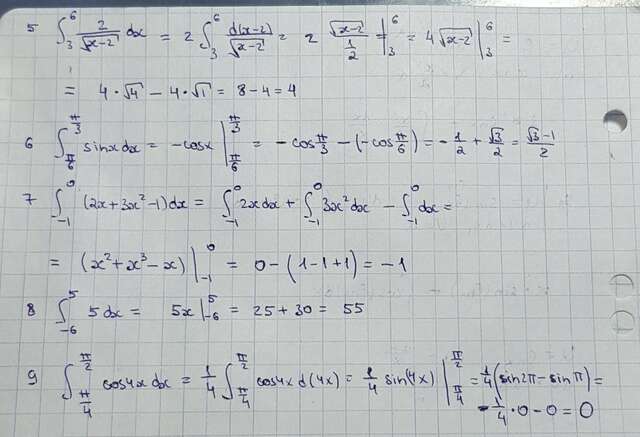 5 ∫₃⁶ 2/√(x-2) dx = 2 ∫₃⁶ d(x-2)/√(x-2) = 2 √(x-2)/(1/2) |₃⁶ = 4√(x-2) |₃⁶ =
= 4·√4 - 4·√1 = 8-4 = 4
6 ∫_{π/6}^{π/3} sinx dx = -cosx |_{π/6}^{π/3} = -cos π/3 - (-cos π/6) = -1/2 + √3/2 = (√3-1)/2
7 ∫₋₁⁰ (2x+3x²-1)dx = ∫₋₁⁰ 2x dx + ∫₋₁⁰ 3x² dx - ∫₋₁⁰ dx =
= (x²+x³-x) |₋₁⁰ = 0-(1-1+1) = -1
8 ∫₋₆⁵ 5 dx = 5x |₋₆⁵ = 25+30 = 55
9 ∫_{π/4}^{π/2} cos4x dx = 1/4 ∫_{π/4}^{π/2} cos4x d(4x) = 1/4 sin(4x) |_{π/4}^{π/2} = 1/4 (sin2π - sinπ) =
= 1/4·0-0 = 0